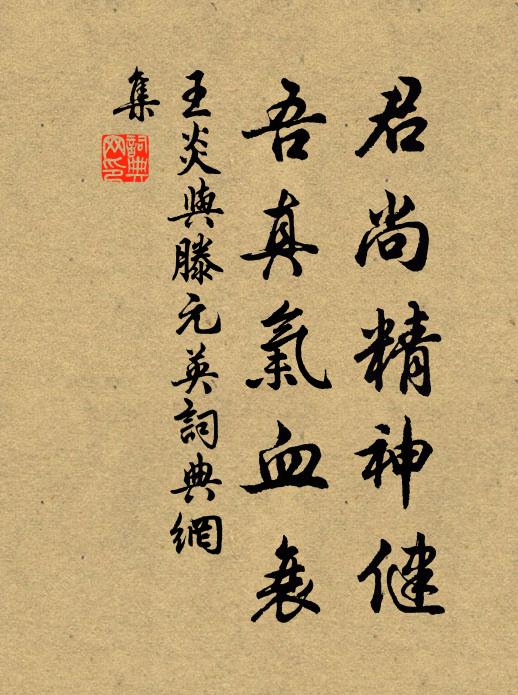 君尚精神健
吾真氣血衰
王炎與滕元英詞典網
集
詞典
网印